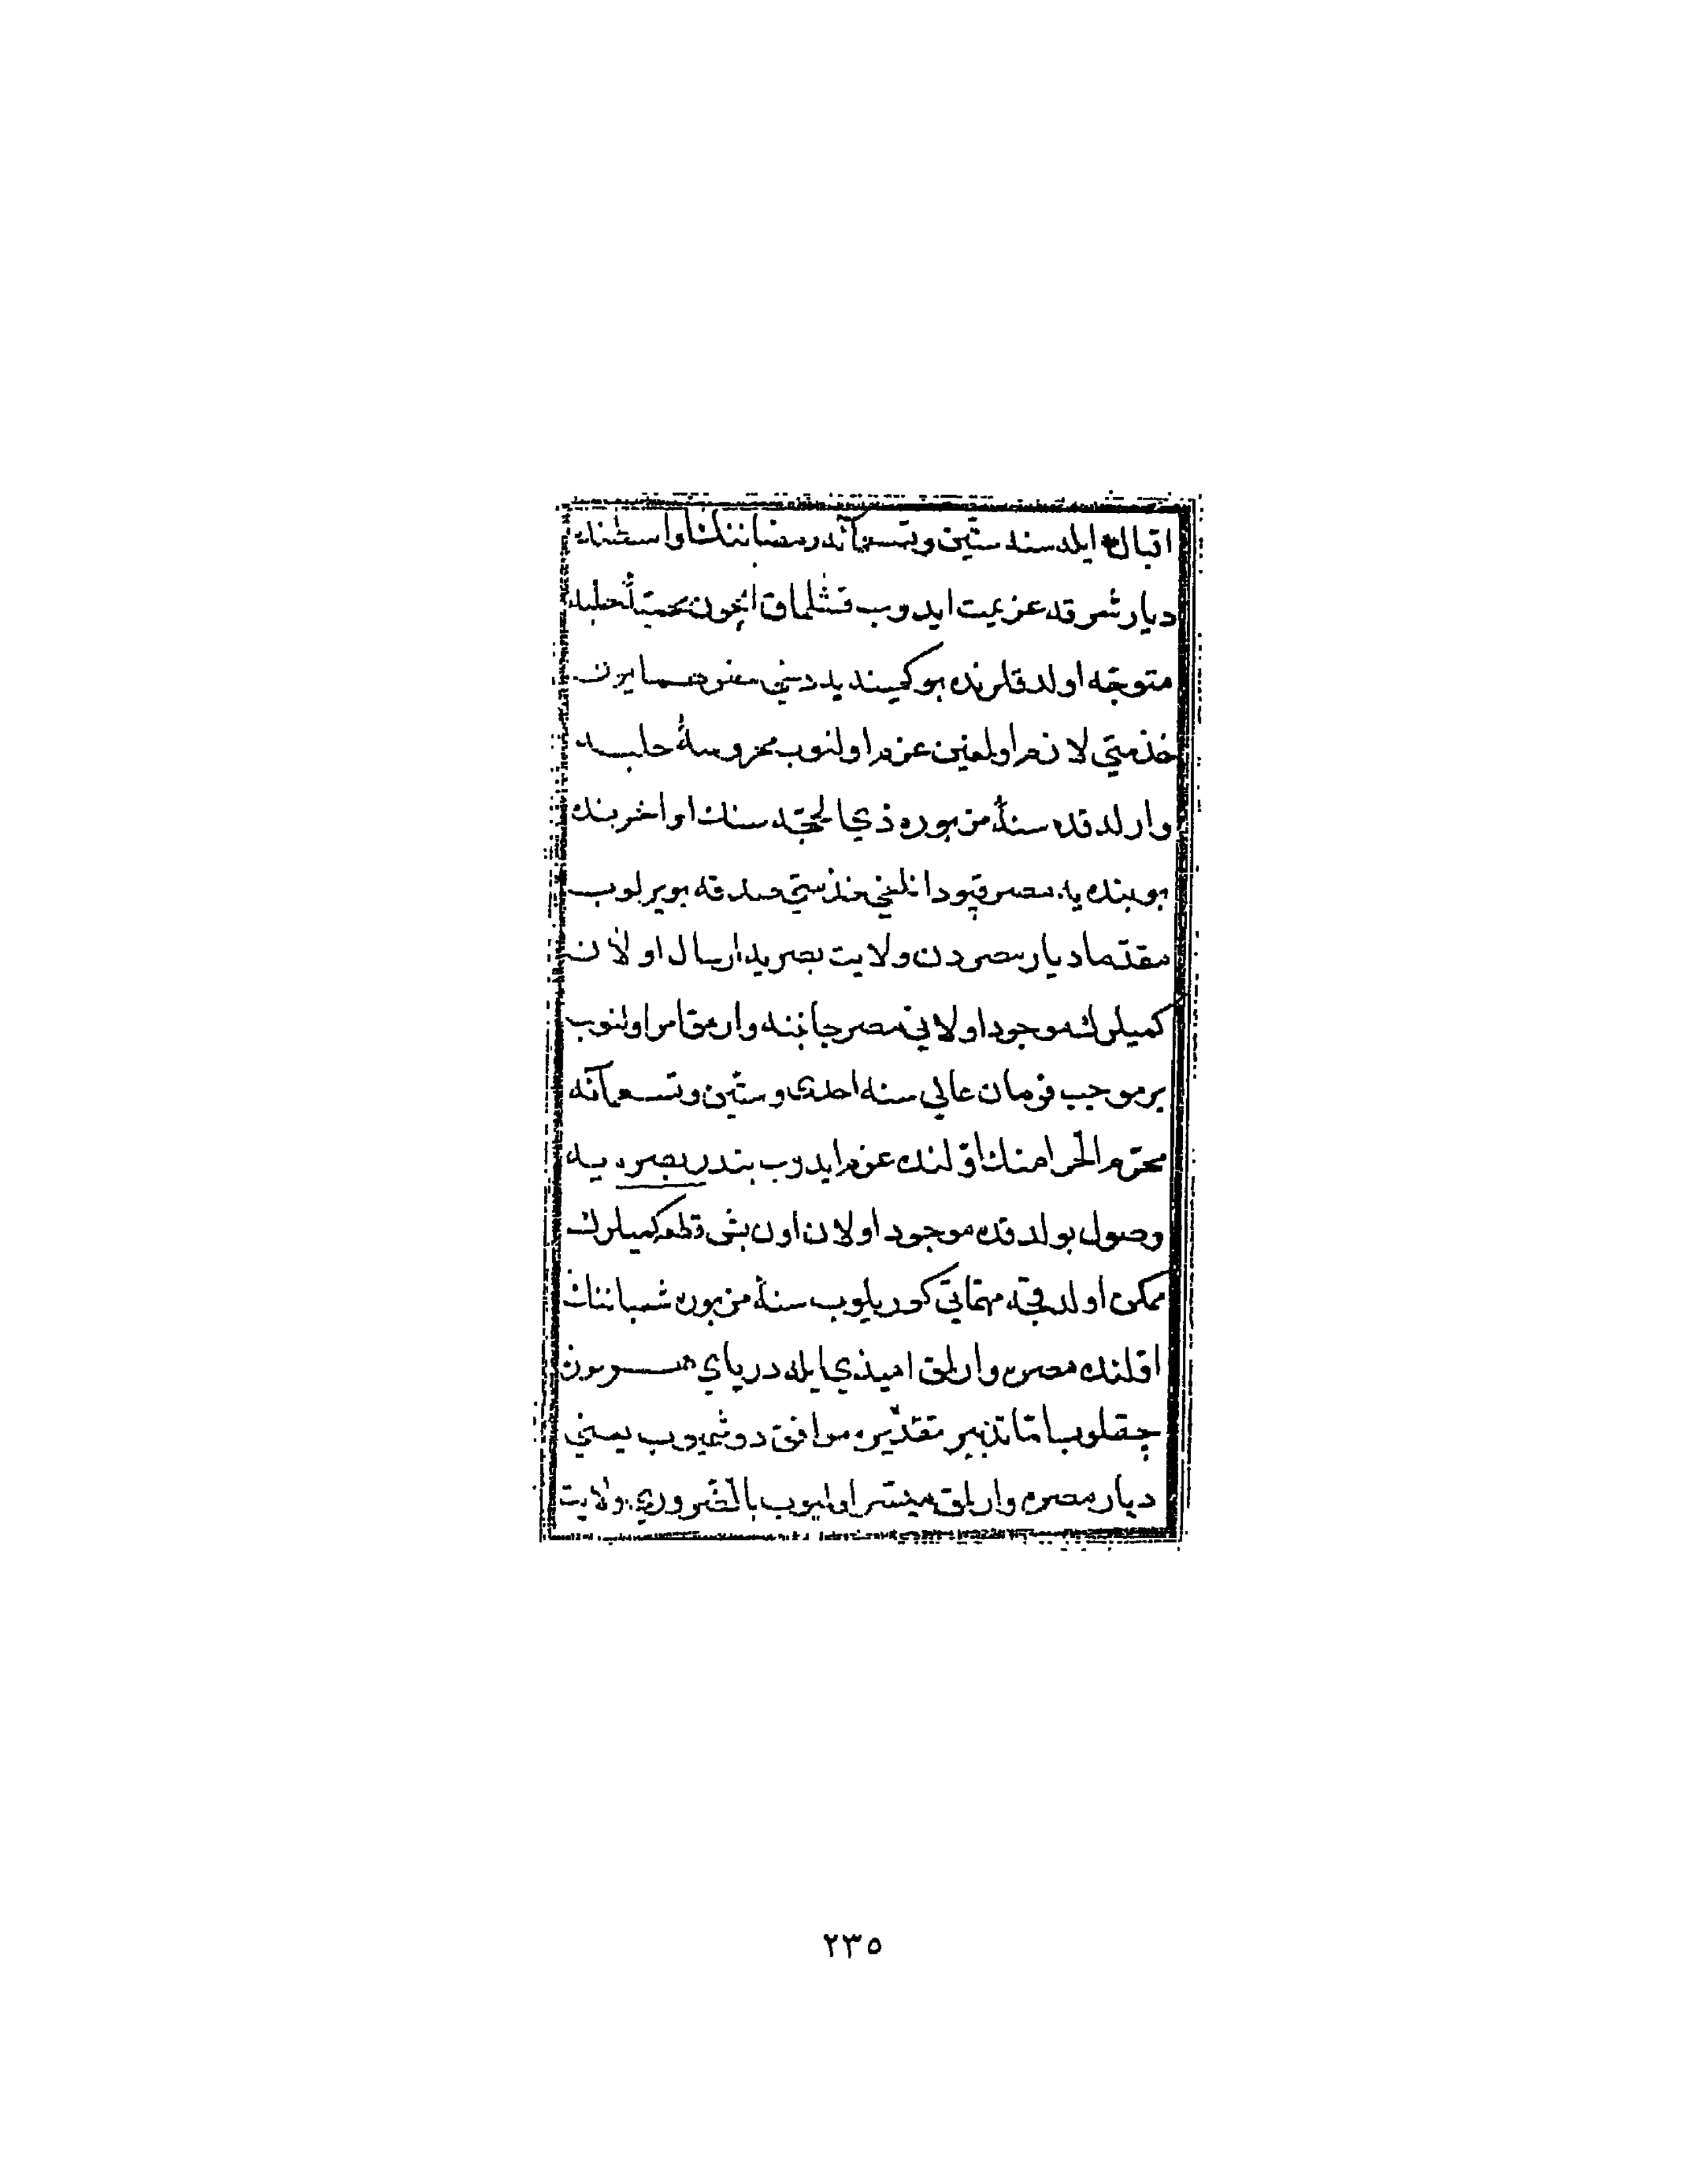 اقبال ايله سنه ستّين وتسعمائه رمضاننك اواسطنده
ديار شرقه عزيمت ايدوب قشلماق ايچون محميّهٔ حلبه
متوجّه اولدقلرنده بو كمينه يه دخي سفر همايون
خذمتي لازم اولمغين عزم اولنوب محروسهٔ حلبه
وارلدقده سنهٔ مزبوره ذي الحجّه سنك اواخرينده
بو بنده يه مصر قپودانلغي خذمتي صدقه بويرلوب
مقدّما ديار مصردن ولايت بصريه ارسال اولان
كميلرك موجود اولاني مصر جانبنه وارمق امر اولنوب
بر موجب فرمان عالي سنه احدى وستّين وتسعمائه
محرّم الحرامنك اوّلنده عزم ايدوب بندر بصره يه
وصول بولدقده موجود اولان اون بش قطعه كميلرك
ممكن اولدقجه مهمّاتي كوريلوب سنهٔ مزبوره شعباننك
اوّلنده مصره وارمق اميدي ايله درياي هرموزه
چقلوب امّا تدبير تقديره موافق دوشميوب يعني
ديار مصره وارلمق ميسّر اولميوب بالضّروري ولايت
٢٣٥